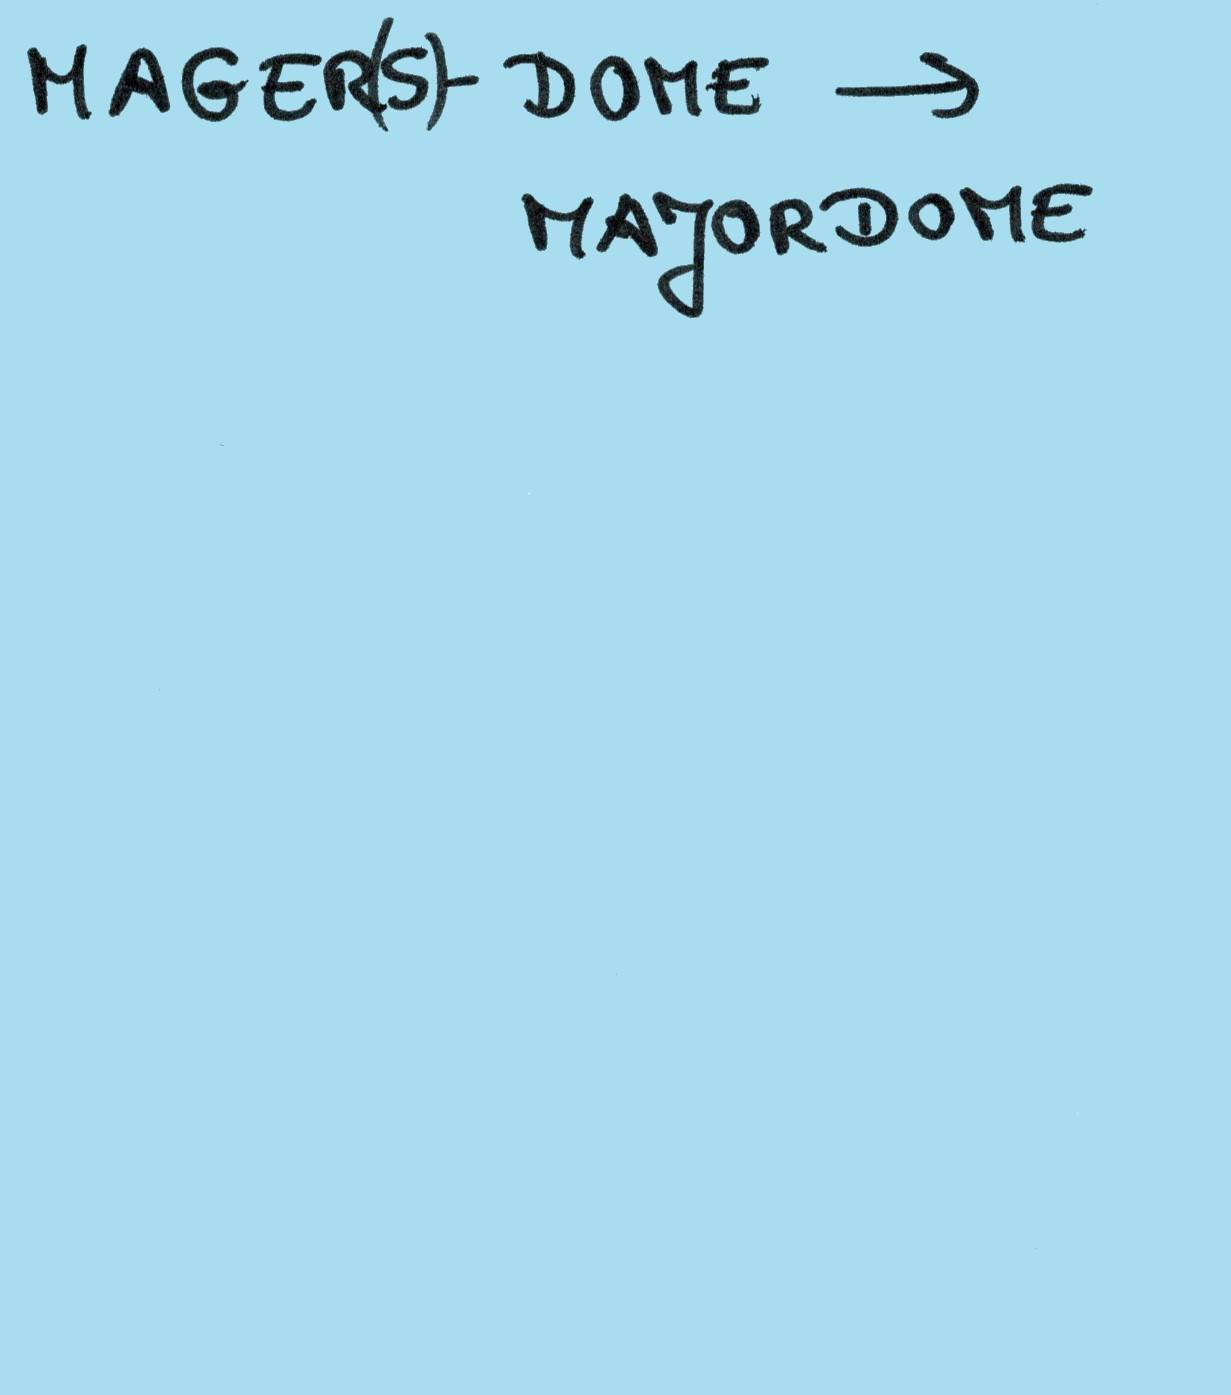 MAGER(S)-DOME →
MAJORDOME